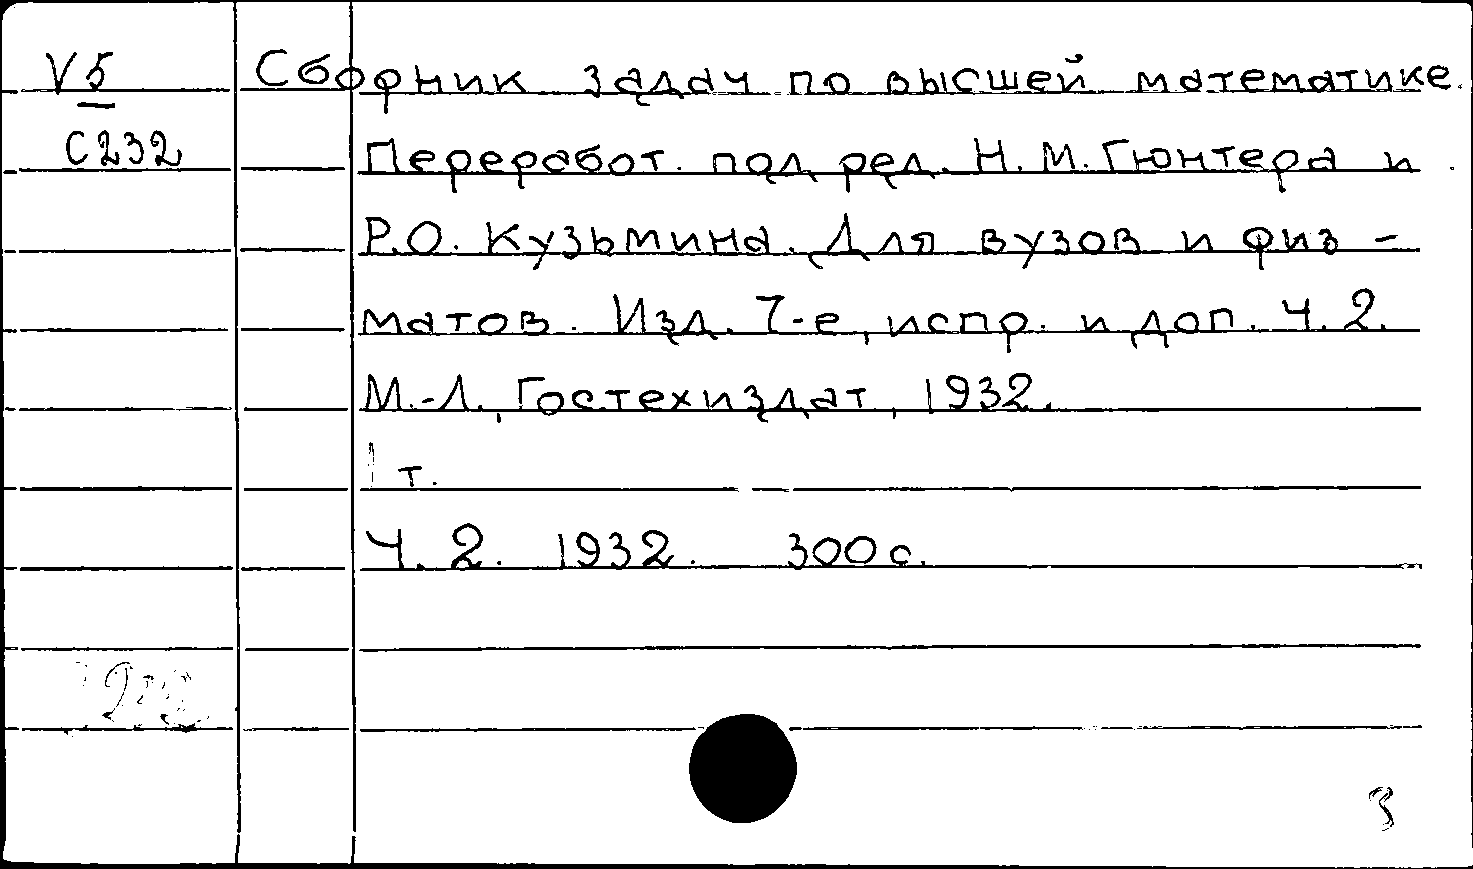 V5
C232
Сборник задач по высшей математике.
Переработ. под ред. Н.М.Гюнтера и
Р.О. Кузьмина. Для вузов и физ-
матов. Изд. 7-е, испр. и доп. Ч.2.
М.-Л., Гостехиздат, 1932.
1 т.
Ч.2. 1932. 300 с.
3